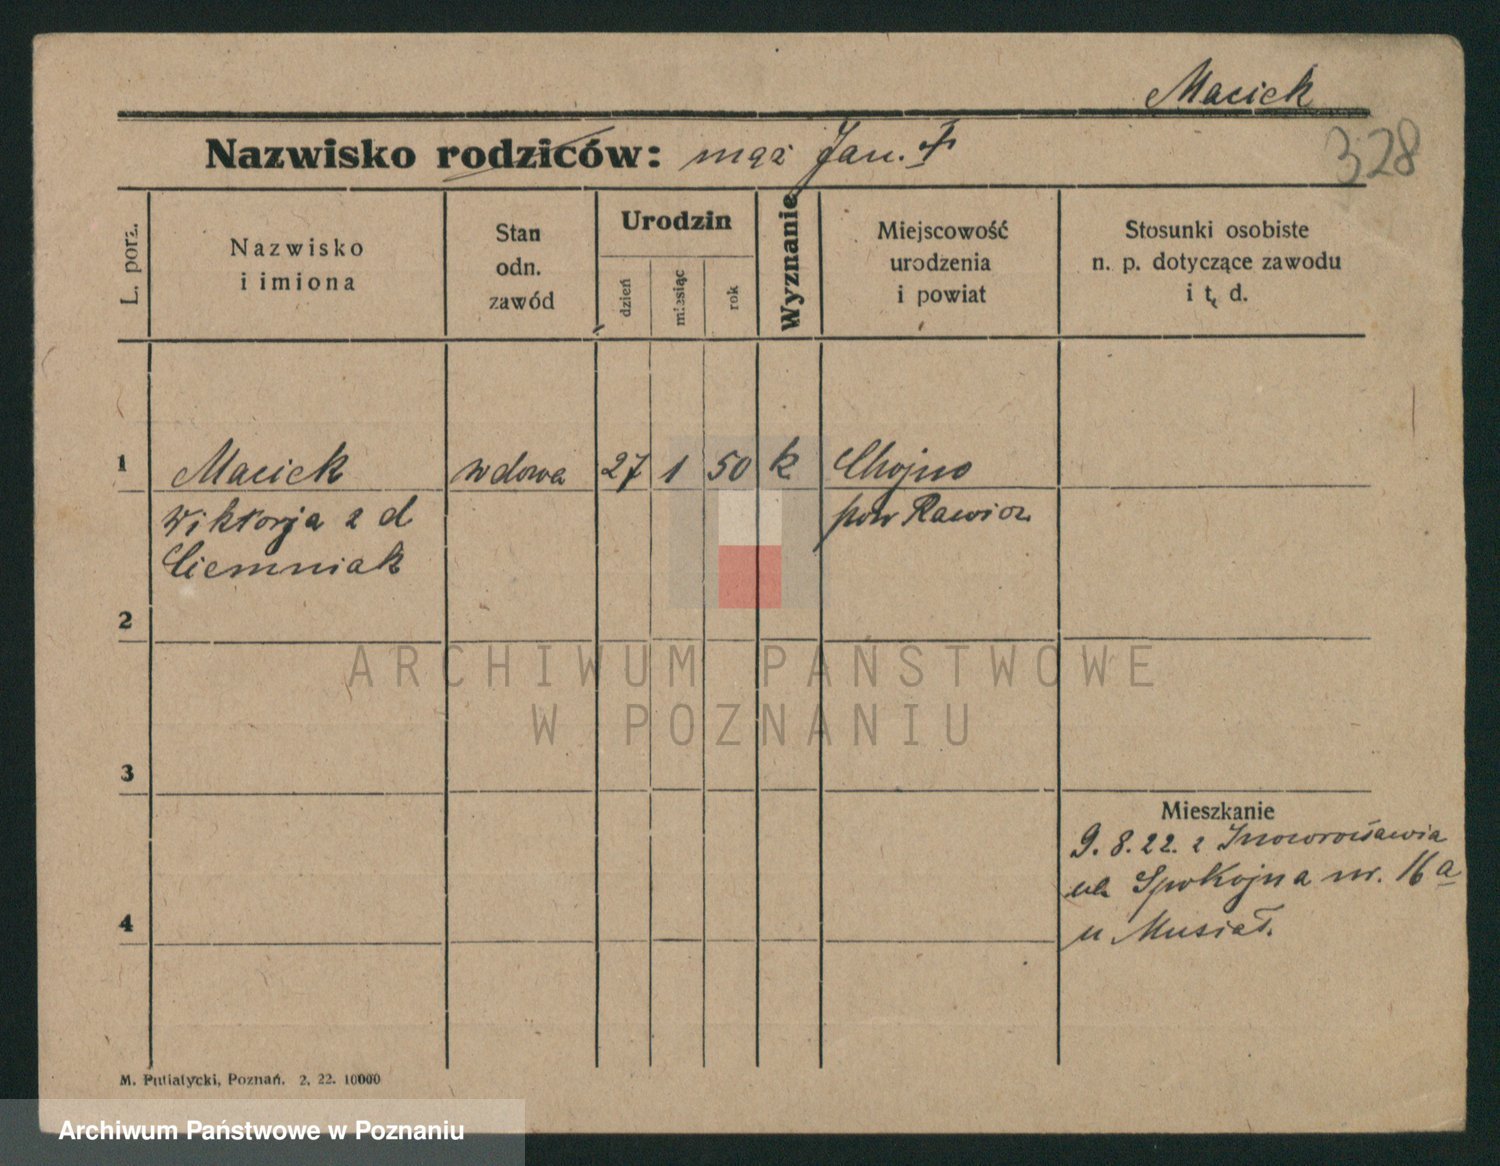 Maciek
328
Nazwisko rodziców: mąż Jan. †
L. porz.
Nazwisko
i imiona
Stan
odn.
zawód
Urodzin
dzień
miesiąc
rok
Wyznanie
Miejscowość
urodzenia
i powiat
Stosunki osobiste
n. p. dotyczące zawodu
i t. d.
1 Maciek wdowa 27 1 50 k Chojno
Wiktorja z d pow Rawicz
Ciemniak
2
ARCHIWUM PAŃSTWOWE
W POZNANIU
3
Mieszkanie
9. 8. 22. z Inowrocławia
ul. Spokojna nr. 16a
4
u Musiał.
M. Putiatycki, Poznań. 2. 22. 10000
Archiwum Państwowe w Poznaniu